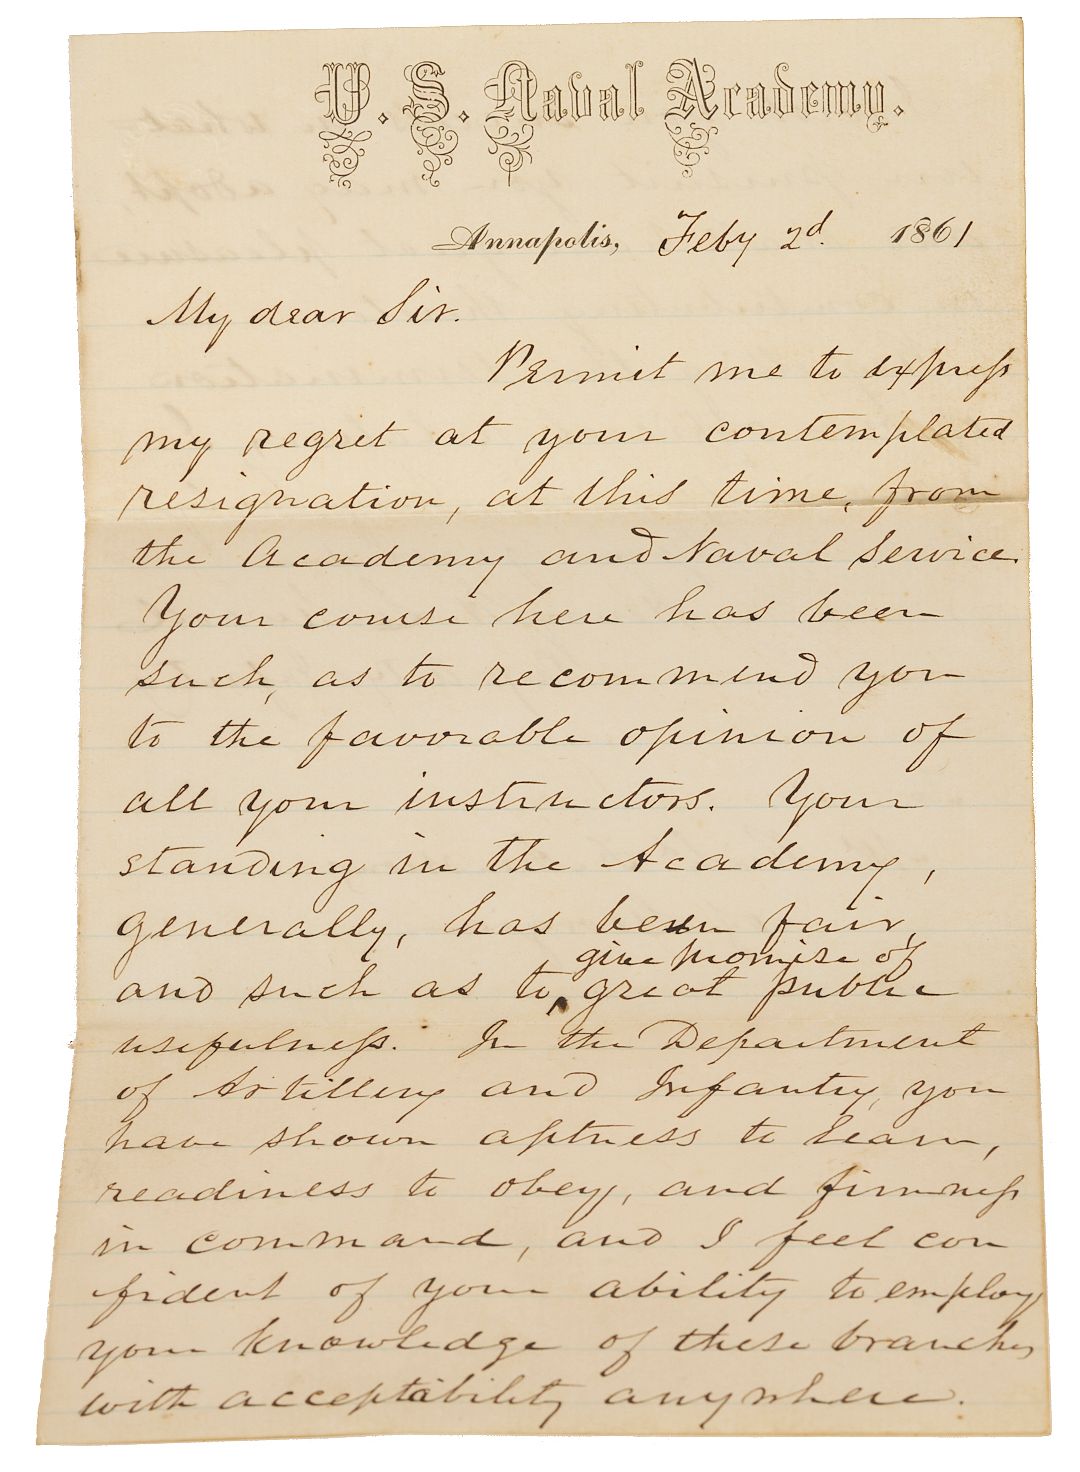 U. S. Naval Academy.
Annapolis, Feby 2d. 1861
My dear Sir.
Permit me to express
my regret at your contemplated
resignation, at this time, from
the Academy and Naval Service.
Your course here has been
such, as to recommend you
to the favorable opinion of
all your instructors. Your
standing in the Academy,
generally, has been fair,
give promise of
and such as to great public
usefulness. In the Department
of Artillery and Infantry, you
have shown aptness to learn,
readiness to obey, and firmness
in command, and I feel con
fident of your ability to employ
your knowledge of these branches
with acceptability anywhere.